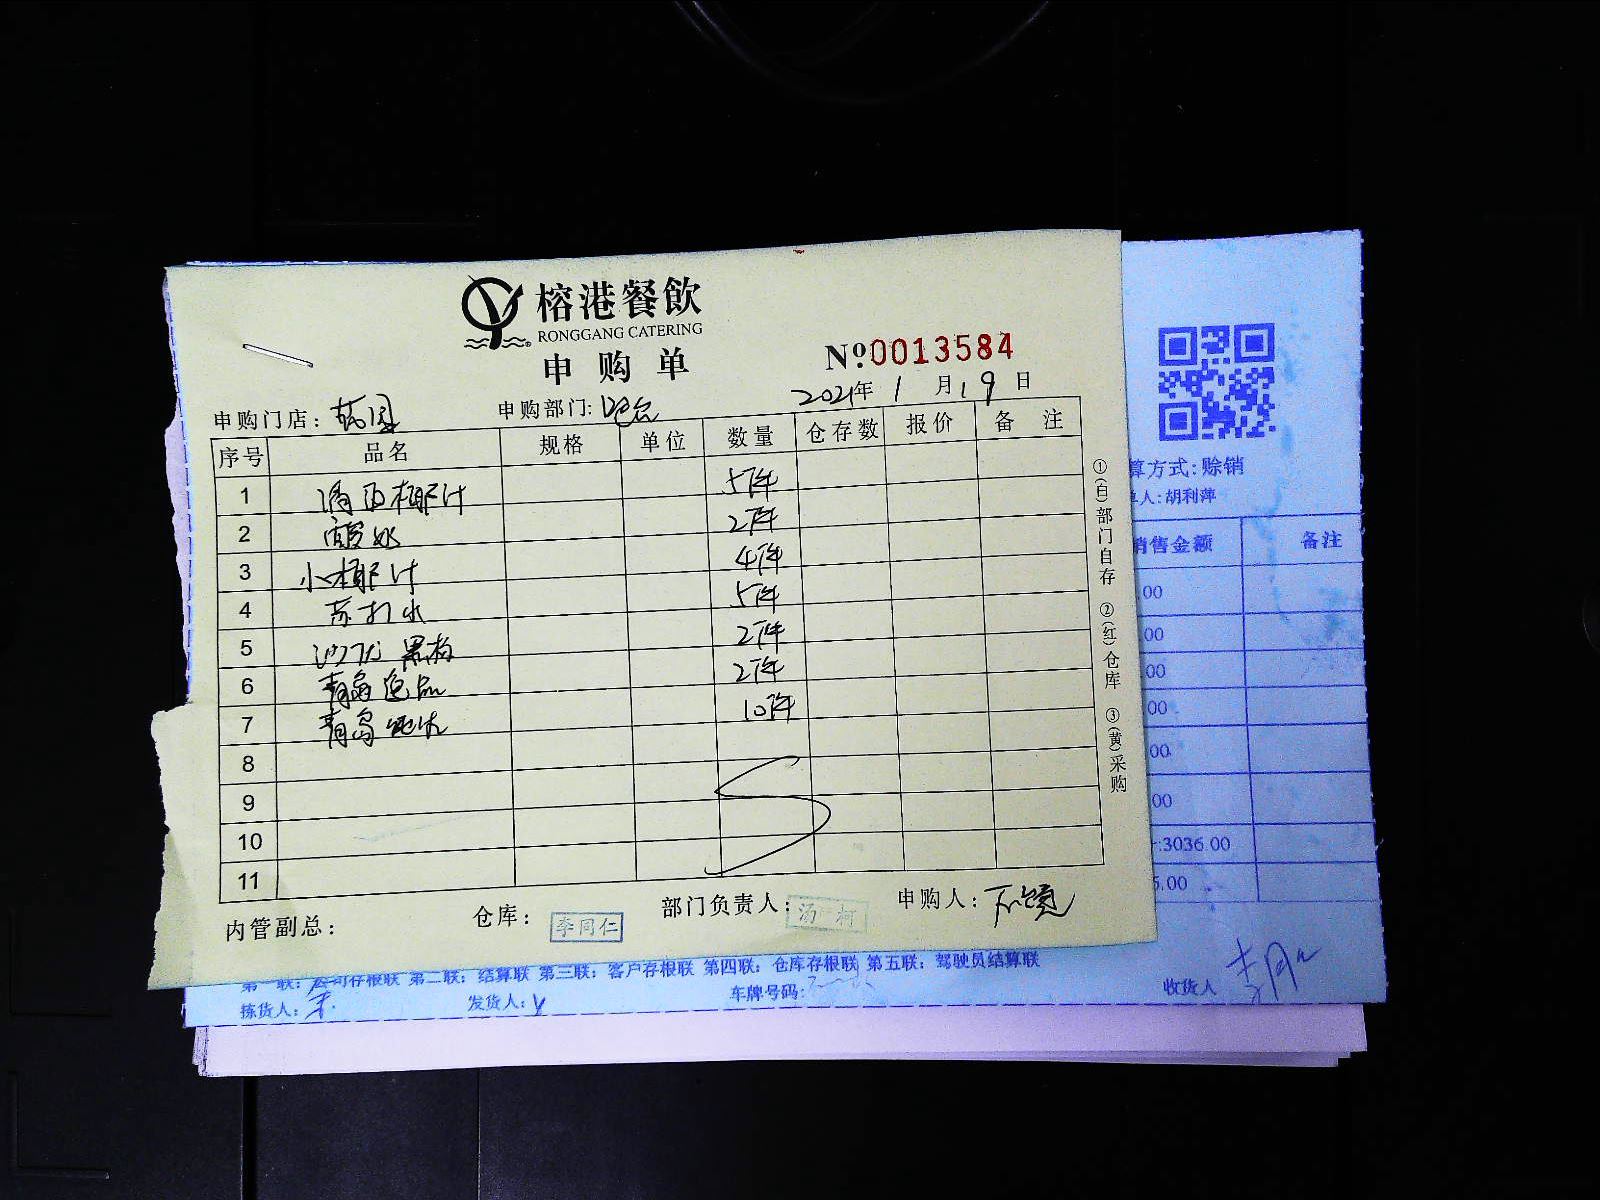 榕港餐飲
RONGGANG CATERING
申购单
№0013584
2021年1月19日
申购门店:
申购部门: 吧台
序号 品名 规格 单位 数量 仓存数 报价 备注
1 椰汁 5件
2 酸奶 2件
3 小椰汁 4件
4 苏打水 5件
5 2件
6 青岛逸品 2件
7 青岛纯生 10件
8
9
10
11
内管副总:
仓库: 李同仁
部门负责人: 汤柯
申购人:
①(白)部门自存 ②(红)仓库 ③(黄)采购
算方式:赊销
单人:胡利萍
销售金额 备注
.00
.00
.00
.00
.00
.00
:3036.00
6.00
第一联:公司存根联 第二联:结算联 第三联:客户存根联 第四联:仓库存根联 第五联:驾驶员结算联
拣货人:
发货人:
车牌号码:
收货人